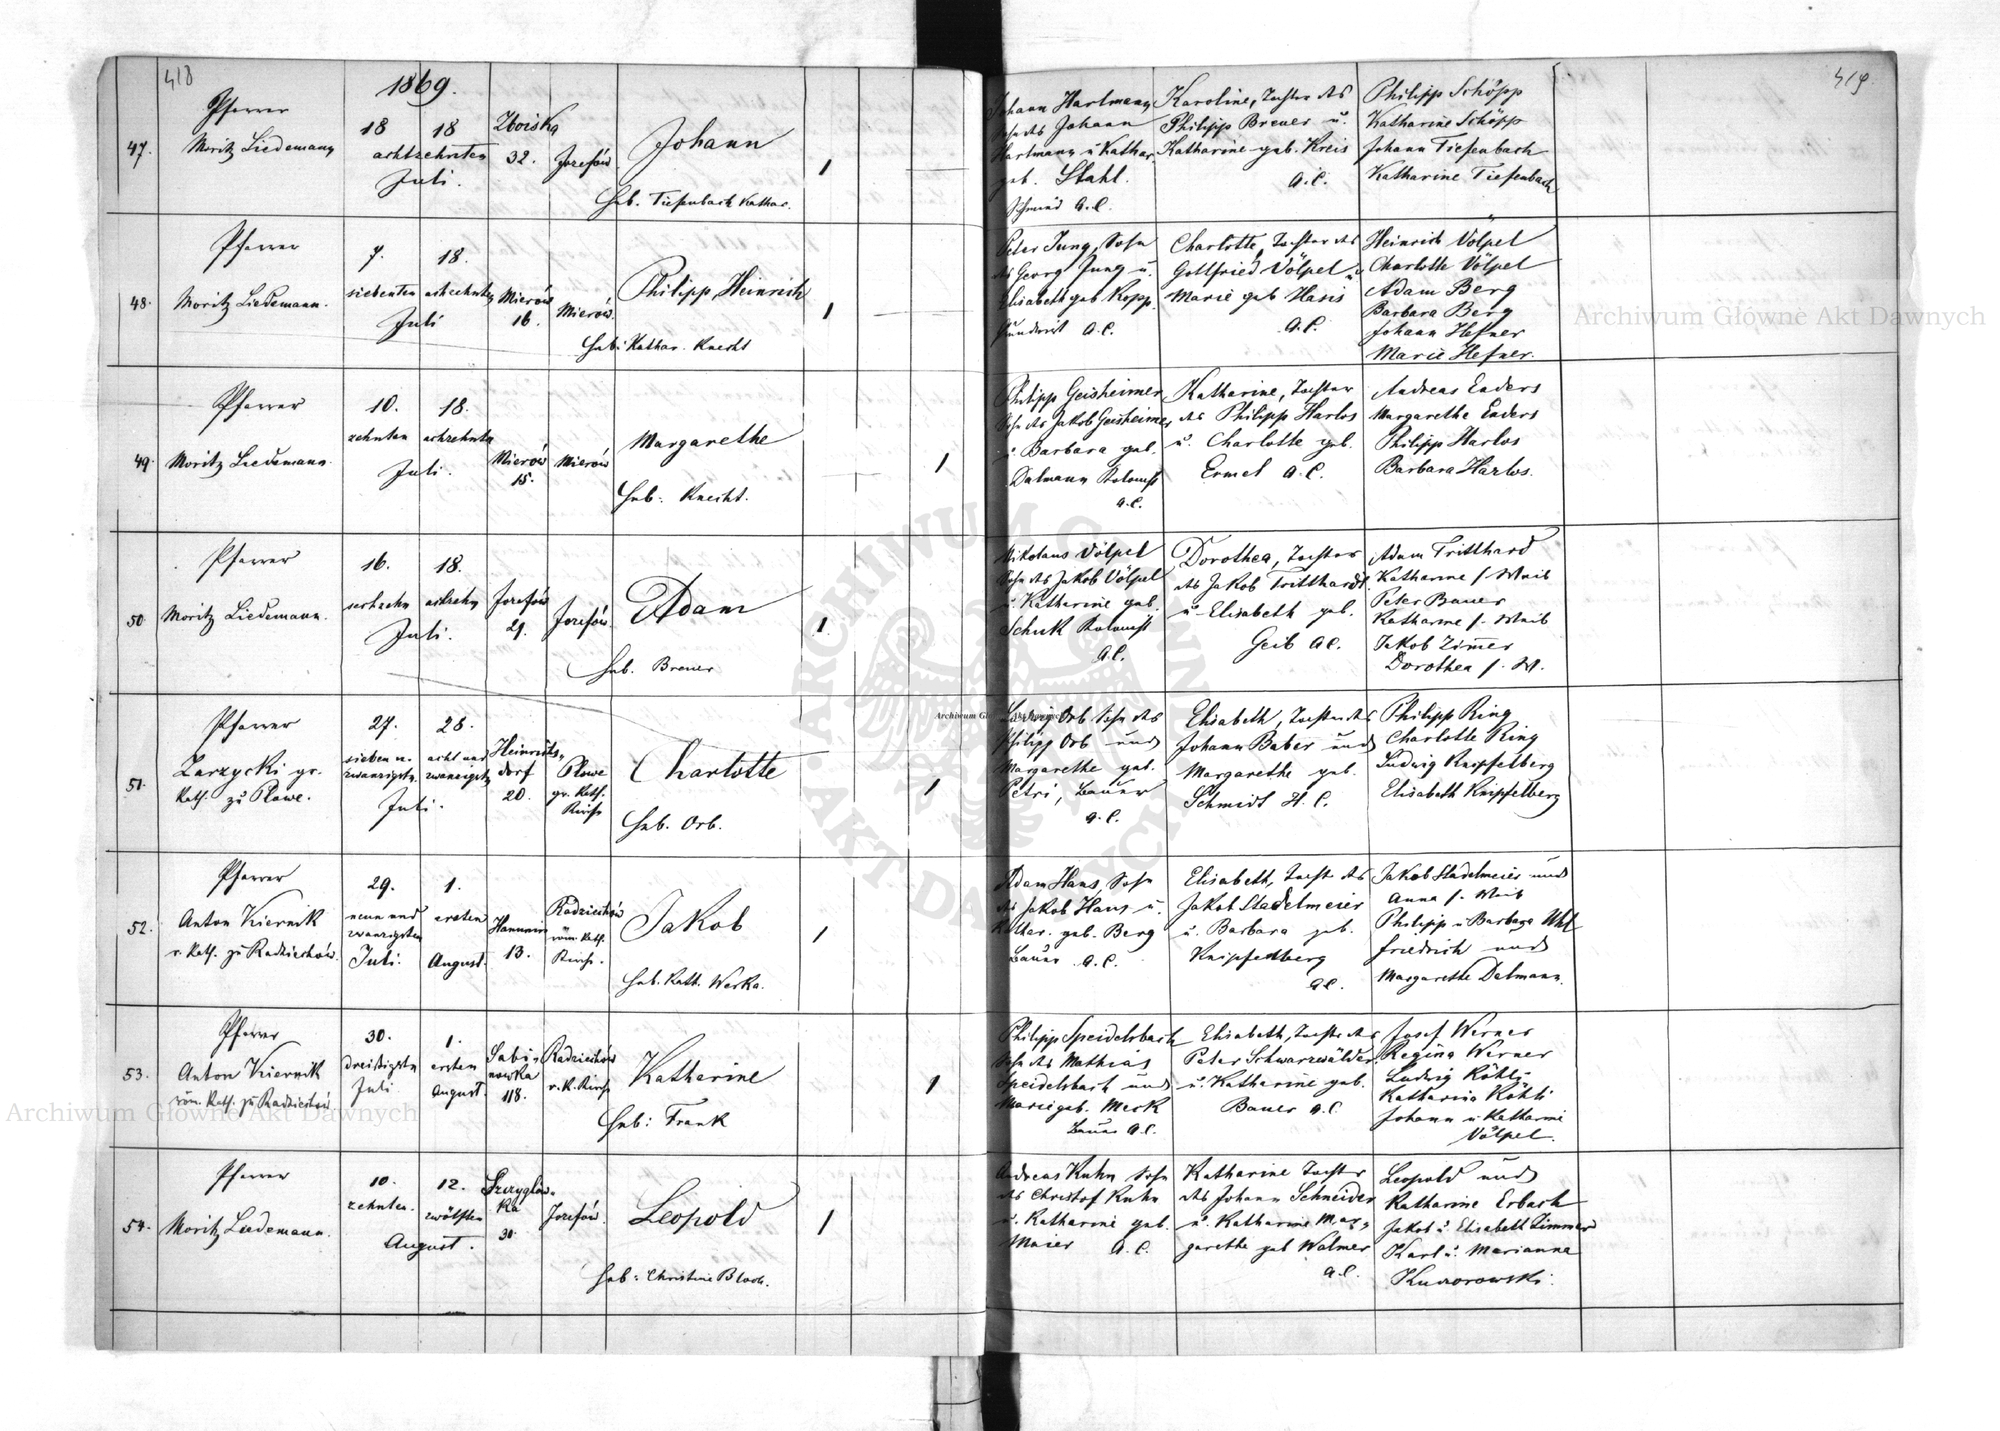 418
1869.
419
47.
Pfarrer
Moritz Liedemann
18
18
achtzehnten
Juli.
Zboiska
32.
Jozefów
Johann
Heb. Tiefenbach Kathar.
1
Johann Hartmann
Sohn des Johann
Hartmann u Kathar.
geb. Stahl.
Schmied A.C.
Karoline, Tochter des
Philipp Breuer u.
Katharine geb. Kreis
A.C.
Philipp Schöpp
Katharine Schöpp
Johann Tiefenbach
Katharine Tiefenbach
48.
Pfarrer
Moritz Liedemann.
7.
18.
siebenten
achzehnten
Juli
Mierów
16.
Mierów.
Philipp Heinrich
Heb: Kathar. Knecht
1
Peter Jung, Sohn
des Georg Jung u.
Elisabeth geb. Kopp.
A.C.
Charlotte, Tochter des
Gottfried Völpel u
Marie geb Hasis
A.C.
Heinrich Völpel
Charlotte Völpel
Adam Berg
Barbara Berg
Johann Hefner
Marie Hefner.
49.
Pfarrer
Moritz Liedemann.
10.
18.
zehnten
achzehnten
Juli.
Mierów
15.
Mierów
Margarethe
Heb. Knecht.
1
Philipp Geisheimer
Sohn des Jakob Geisheimer
u Barbara geb.
Dalmann Kolonist
A.C.
Katharine, Tochter
des Philipp Harlos
u. Charlotte geb.
Ermel A.C.
Andreas Enders
Margarethe Enders
Philipp Harlos
Barbara Harlos.
50
Pfarrer
Moritz Liedemann.
16.
18.
sechzehn
achtzehn
Juli.
Jozefów
29.
Jozefów.
Adam
Heb. Breuer
1.
Nikolaus Völpel
Sohn des Jakob Völpel
u. Katharine geb.
Schuk Kolonist
A.C.
Dorothea, Tochter
des Jakob Tritthardt
u. Elisabeth geb.
Geib A.C.
Adam Tritthard
Katharine s. Weib
Peter Bauer
Katharine s. Weib
Jakob Zimmer
Dorothea s. W.
51.
Pfarrer
Zarzycki gr.
Kath. zu Płowe.
27.
28.
sieben u.
zwanzigsten
acht und
zwanzigsten
Juli.
Heinrichs-
dorf
20.
Płowe
gr. Kath.
Kirche
Charlotte
Heb. Orb.
1
Ludwig Orb Sohn des
Philipp Orb und
Margarethe geb.
Petri, Bauer
A.C.
Elisabeth, Tochter des
Johann Baber und
Margarethe geb.
Schmidt H.C.
Philipp Ring
Charlotte Ring
Ludwig Knipfelberg
Elisabeth Knipfelberg
52.
Pfarrer
Anton Kiernik
r. Kath. zu Radziechów.
29.
1.
neun und
zwanzigsten
Juli.
ersten
August.
Hanunin
13.
Radziechów
röm. Kath.
Kirche.
Jakob
Heb. Kath. Werka.
1
Adam Haus, Sohn
des Jakob Haus u.
Kathar. geb. Berg
Bauer A.C.
Elisabeth, Tocht des
Jakob Stadelmeier
u. Barbara geb.
Knipfenberg
A.C.
Jakob Stadelmeier und
Anna s. Weib
Philipp u Barbara Uhl
Friedrich und
Margarethe Dalmann.
53.
Pfarrer
Anton Kiernik
röm. Kath. zu Radziechów
30.
1.
dreißigsten
Juli
ersten
August.
Sabi-
nowka
118.
Radziechów
r. K. Kirche
Katharine
Heb: Frank
1
Philipp Speidelsbach
Sohn des Mathias
Speidelsbach und
Marie geb. Merk
Bauer A.C.
Elisabeth, Tocht des
Peter Schwarzwälder
u. Katharine geb.
Bauer A.C.
Josef Werner
Regina Werner
Ludwig Köhli
Katharina Köhli
Johann u Katharine
Völpel.
54.
Pfarrer
Moritz Liedemann.
10.
12.
zehnten.
zwölften
August.
Szczyglów-
ka
30.
Jozefów.
Leopold
Heb: Christine Bloch.
1
Andreas Kuhn Sohn
des Christof Kuhn
u. Katharine geb.
Maier A.C.
Katharine Tochter
des Johann Schneider
u. Katharine Mar-
garethe geb Walmer
A.C.
Leopold und
Katharine Erbach
Jakob u. Elisabeth Zimmer
Karl u. Marianna
Archiwum Główne Akt Dawnych
Archiwum Główne Akt Dawnych
Archiwum Główne Akt Dawnych
ARCHIWUM GŁÓWNE AKT DAWNYCH